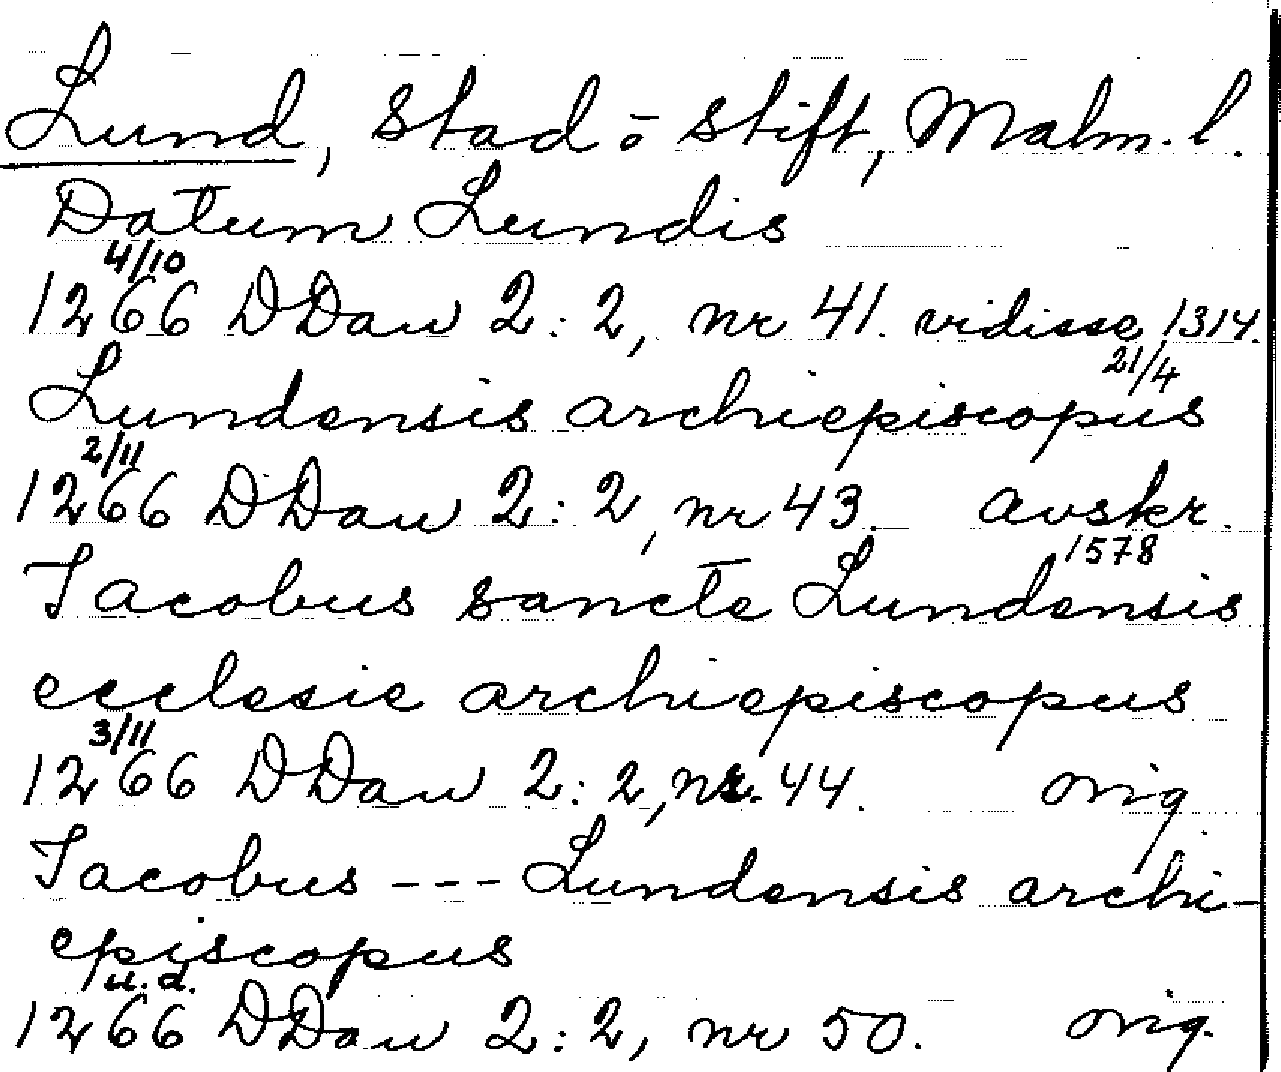 Lund, stad o stift, Malm. l.
Datum Lundis
4/10
1266 DDan 2:2, nr 41. vidisse 1314.
21/4
Lundensis archiepiscopus
2/11
1266 DDan 2:2, nr 43. avskr.
1578
Iacobus sancte Lundensis
ecclesie archiepiscopus
3/11
1266 DDan 2:2, nr. 44. orig
Iacobus --- Lundensis archi-
episcopus
u.d.
1266 DDan 2:2, nr 50. orig.